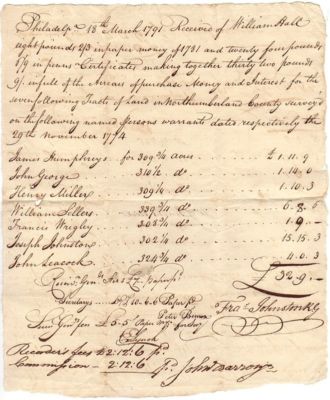 Philadelpa 18th March 1791 Received of William Hall
eight pounds 2/3 in paper money of 1781 and twenty four pounds
in penns Certificates making together thirty two pounds
9/. in full of the Arrears of purchase Money and Interest for the
seven following Tracts of Land in Northumberland County Survey'd
on the following named persons warrants dated respectively the
29th November 1774
James Humphreys for 309 3/4 acres £ 1.11.9
John George 310 1/2 do 1.14.0
Henry Miller 309 1/4 do 1.10.3
William Sellers 339 3/4 do 6.8.6
Francis Wrigley do 1.9.—
Joseph Johnston 302 1/4 do 15.15.3
John Leacock 324 3/4 do 4.0.3
£32.9.—
Fras. Johnston
10.6.6
for
Recorders fees £2:12:6
Commission — 2:12:6 pr. John